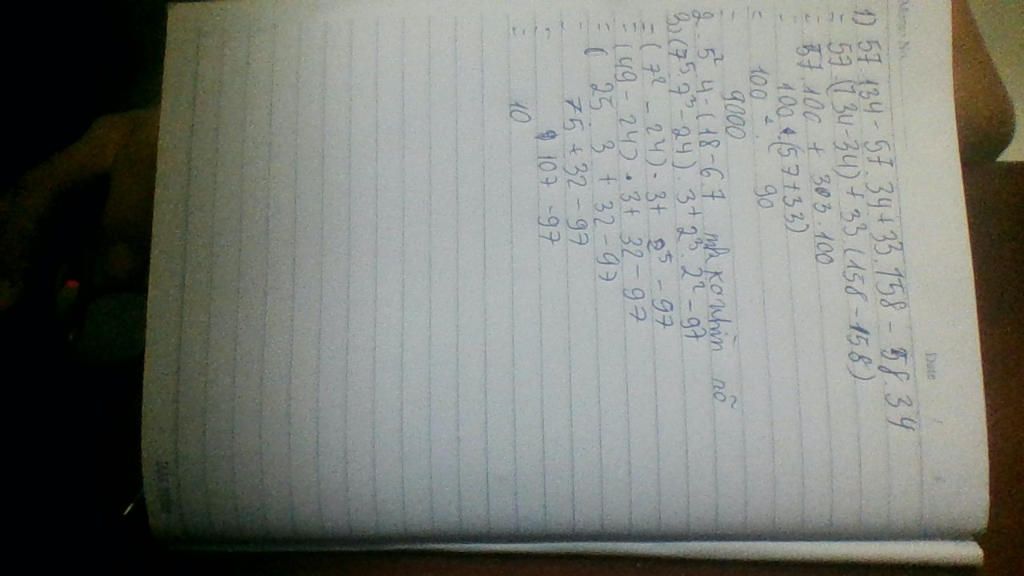 Date
1) 57.134 - 57.34 + 33.158 - 58.34
= 57 (134 - 34) + 33 (158 - 158)
= 57.100 + 33.100
= 100 (57 + 33)
= 100 . 90
= 9000
2. 5² 4 - (18 - 67
3) (75 7³ - 24) . 3 + 2³ . 2² - 97
= (7² - 24) . 3 + 2⁵ - 97
= (49 - 24) . 3 + 32 - 97
= ( 25 3 + 32 - 97
= 75 + 32 - 97
= 107 - 97
= 10